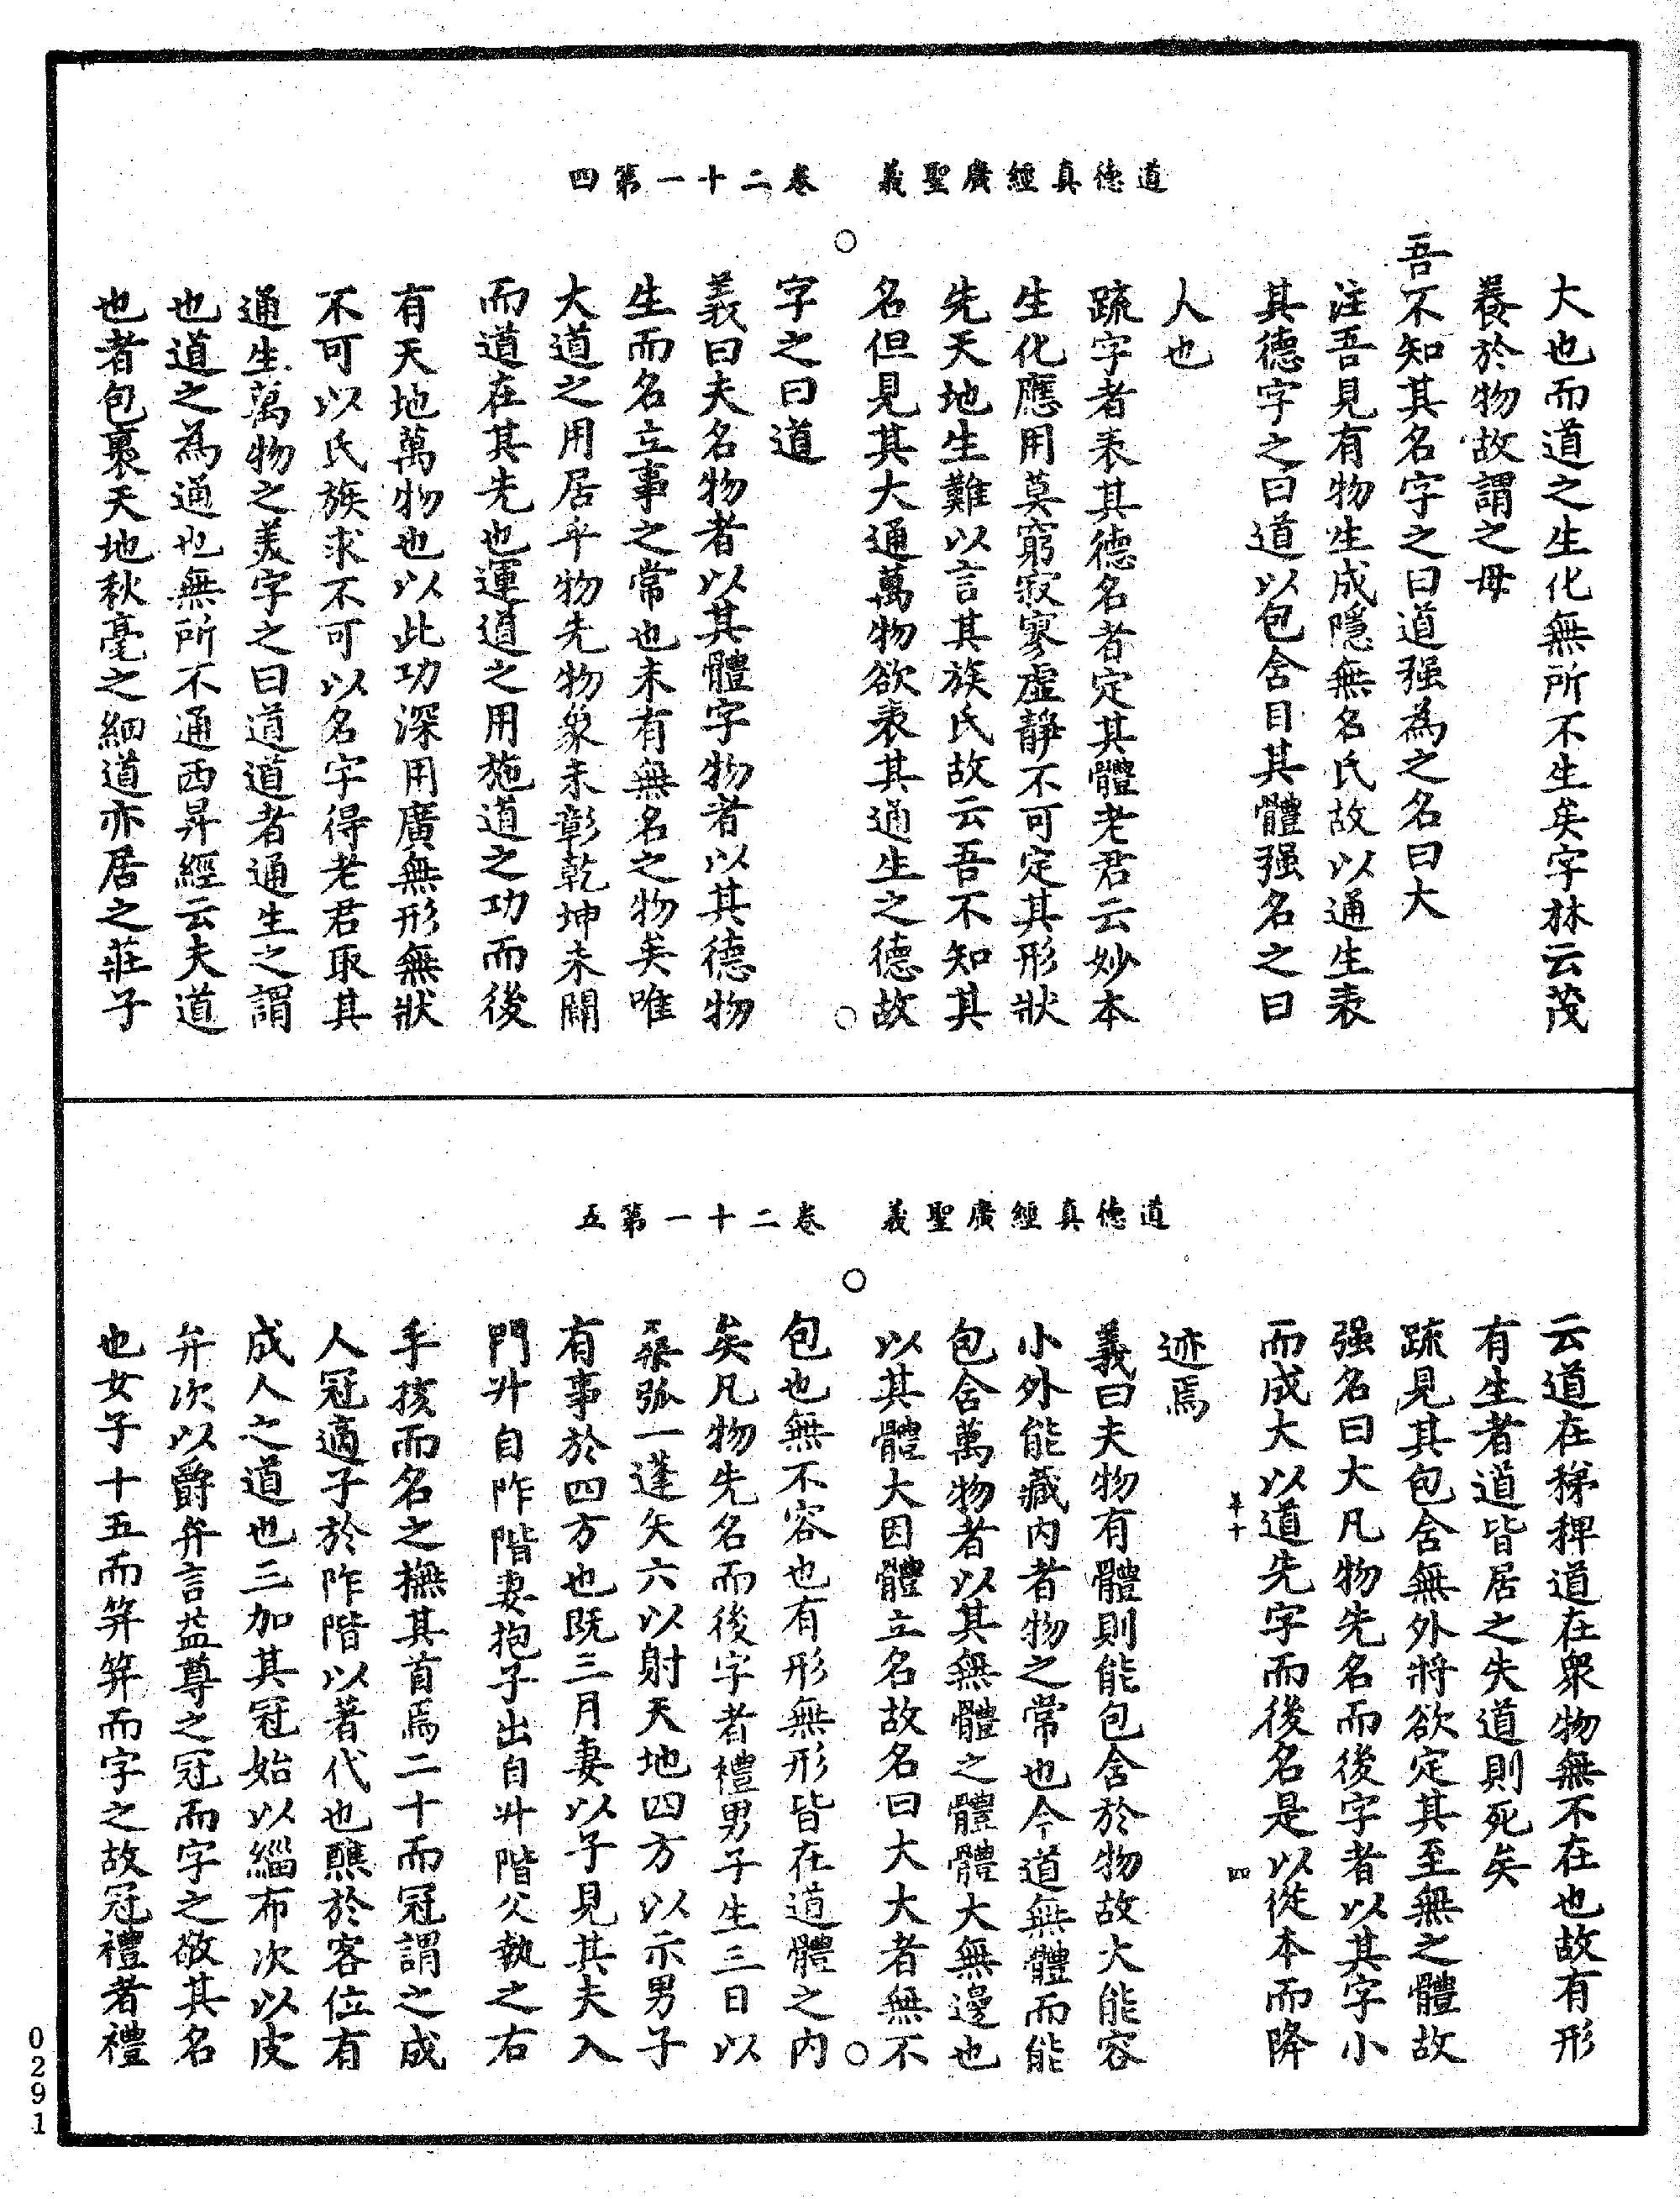 道德真經廣聖義　卷二十一第四
大也而道之生化無所不生矣字林云茂
養於物故謂之母
吾不知其名字之曰道强為之名曰大
注吾見有物生成隱無名氏故以通生表
其德字之曰道以包含目其體强名之曰
人也
疏字者表其德名者定其體老君云妙本
生化應用莫窮寂寥虛靜不可定其形狀
先天地生難以言其族氏故云吾不知其
名但見其大通萬物欲表其通生之德故
字之曰道
義曰夫名物者以其體字物者以其德物
生而名立事之常也未有無名之物矣唯
大道之用居乎物先物象未彰乾坤未闢
而道在其先也運道之用施道之功而後
有天地萬物也以此功深用廣無形無狀
不可以氏族求不可以名字得老君取其
通生萬物之美字之曰道道者通生之謂
也道之為通也無所不通西昇經云夫道
也者包裹天地秋毫之細道亦居之莊子
道德真經廣聖義　卷二十一第五
云道在稊稗道在衆物無不在也故有形
有生者道皆居之失道則死矣
疏見其包含無外將欲定其至無之體故
强名曰大凡物先名而後字者以其字小
而成大以道先字而後名是以從本而降
羊十　四
迹焉
義曰夫物有體則能包含於物故大能容
小外能藏内者物之常也今道無體而能
包含萬物者以其無體之體體大無邊也
以其體大因體立名故名曰大大者無不
包也無不容也有形無形皆在道體之内
矣凡物先名而後字者禮男子生三日以
桑弧一蓬矢六以射天地四方以示男子
有事於四方也既三月妻以子見其夫入
門升自阼階妻抱子出自升階父執之右
手孩而名之撫其首焉二十而冠謂之成
人冠適子於阼階以著代也醮於客位有
成人之道也三加其冠始以緇布次以皮
弁次以爵弁言益尊之冠而字之敬其名
也女子十五而笄笄而字之故冠禮者禮
0291